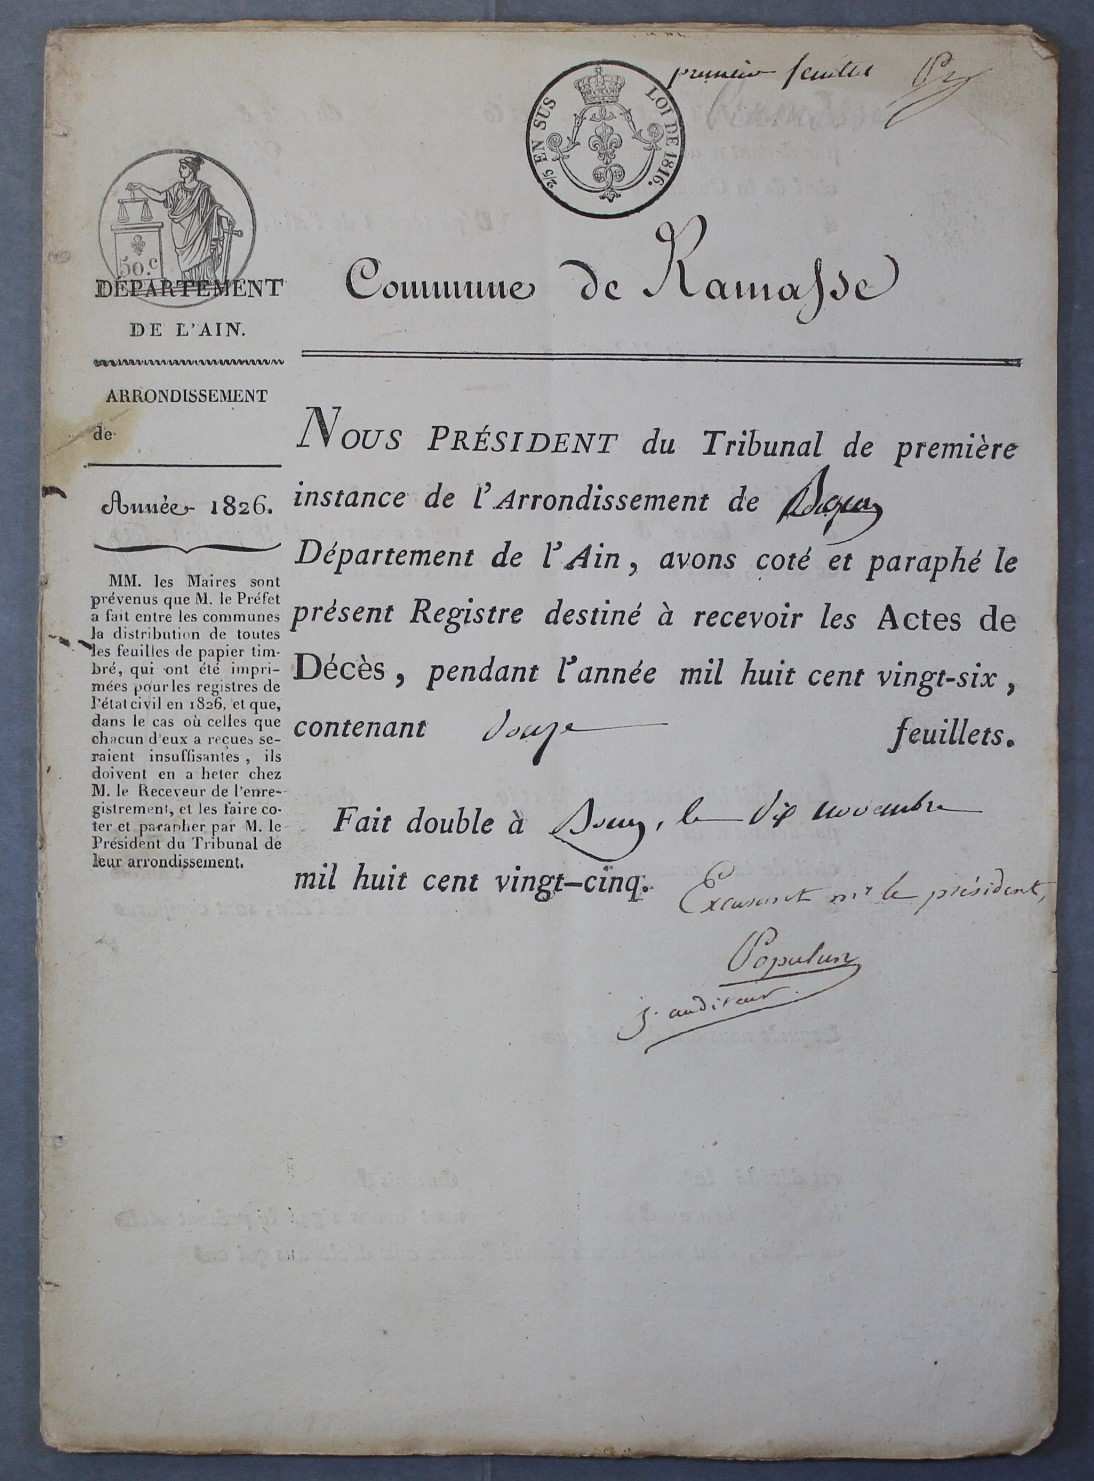 premier feuillet
2/5 EN SUS LOI DE 1816.
50.c
DÉPARTEMENT
DE L'AIN.
Commune de Ramasse
ARRONDISSEMENT
de
Année 1826.
MM. les Maires sont
prévenus que M. le Préfet
a fait entre les communes
la distribution de toutes
les feuilles de papier tim-
bré, qui ont été impri-
mées pour les registres de
l'état civil en 1826, et que,
dans le cas où celles que
chacun d'eux a reçues se-
raient insuffisantes, ils
doivent en a heter chez
M. le Receveur de l'enre-
gistrement, et les faire co-
ter et parapher par M. le
Président du Tribunal de
leur arrondissement.
NOUS PRÉSIDENT du Tribunal de première
instance de l'Arrondissement de Bourg
Département de l'Ain, avons coté et paraphé le
présent Registre destiné à recevoir les Actes de
Décès, pendant l'année mil huit cent vingt-six,
contenant douze feuillets.
Fait double à Bourg, le dix novembre
mil huit cent vingt-cinq.
Excusant mr le président,
Populus
j. auditeur